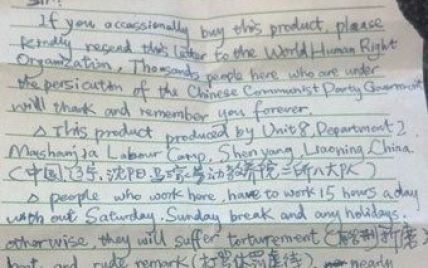 Sir:
If you occassionally buy this product, please
kindly resend this letter to the World Human Right
Organization. Thousands people here who are under
the persicution of the Chinese Communist Party Government
will thank and remember you forever.
△ This product produced by Unit 8, Department 2,
Mashanjia Labour Camp, Shen yang, Liaoning, China.
(中国,辽宁,沈阳,马三家劳动教养院二所八大队)
△ people who work here, have to work 15 hours a day
with out Saturday, Sunday break and any holidays.
otherwise, they will suffer torturement
beat and rude remark nearly